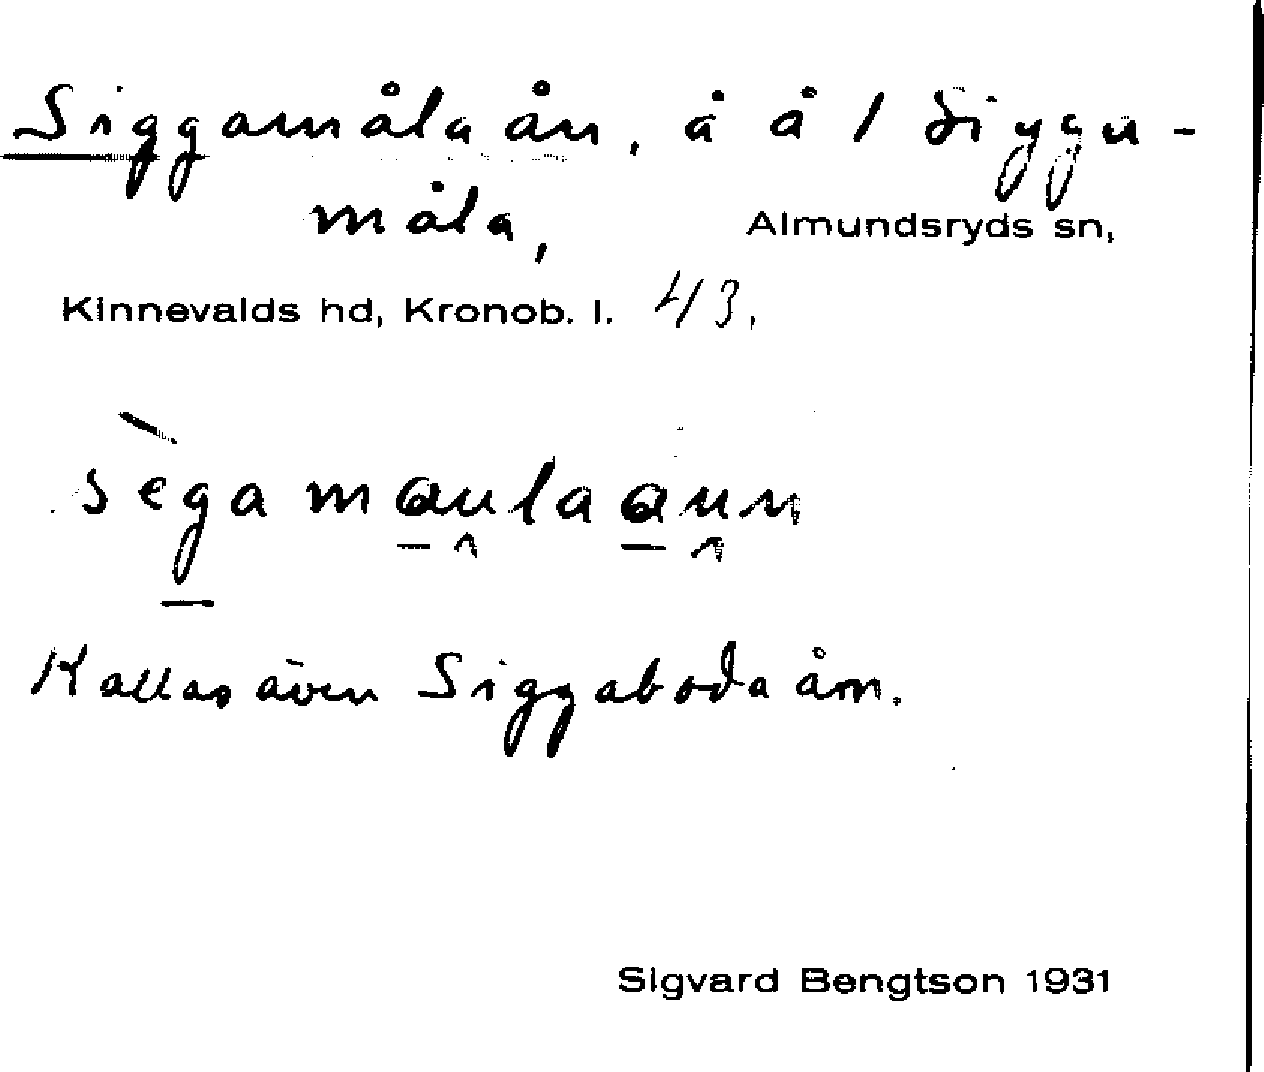 Siggamåla ån, å å / Sigga-
måla,
Almundsryds sn,
Kinnevalds hd, Kronob. l. 43.
sègamaulaaun
Kallas även Siggaboda ån.
Sigvard Bengtson 1931